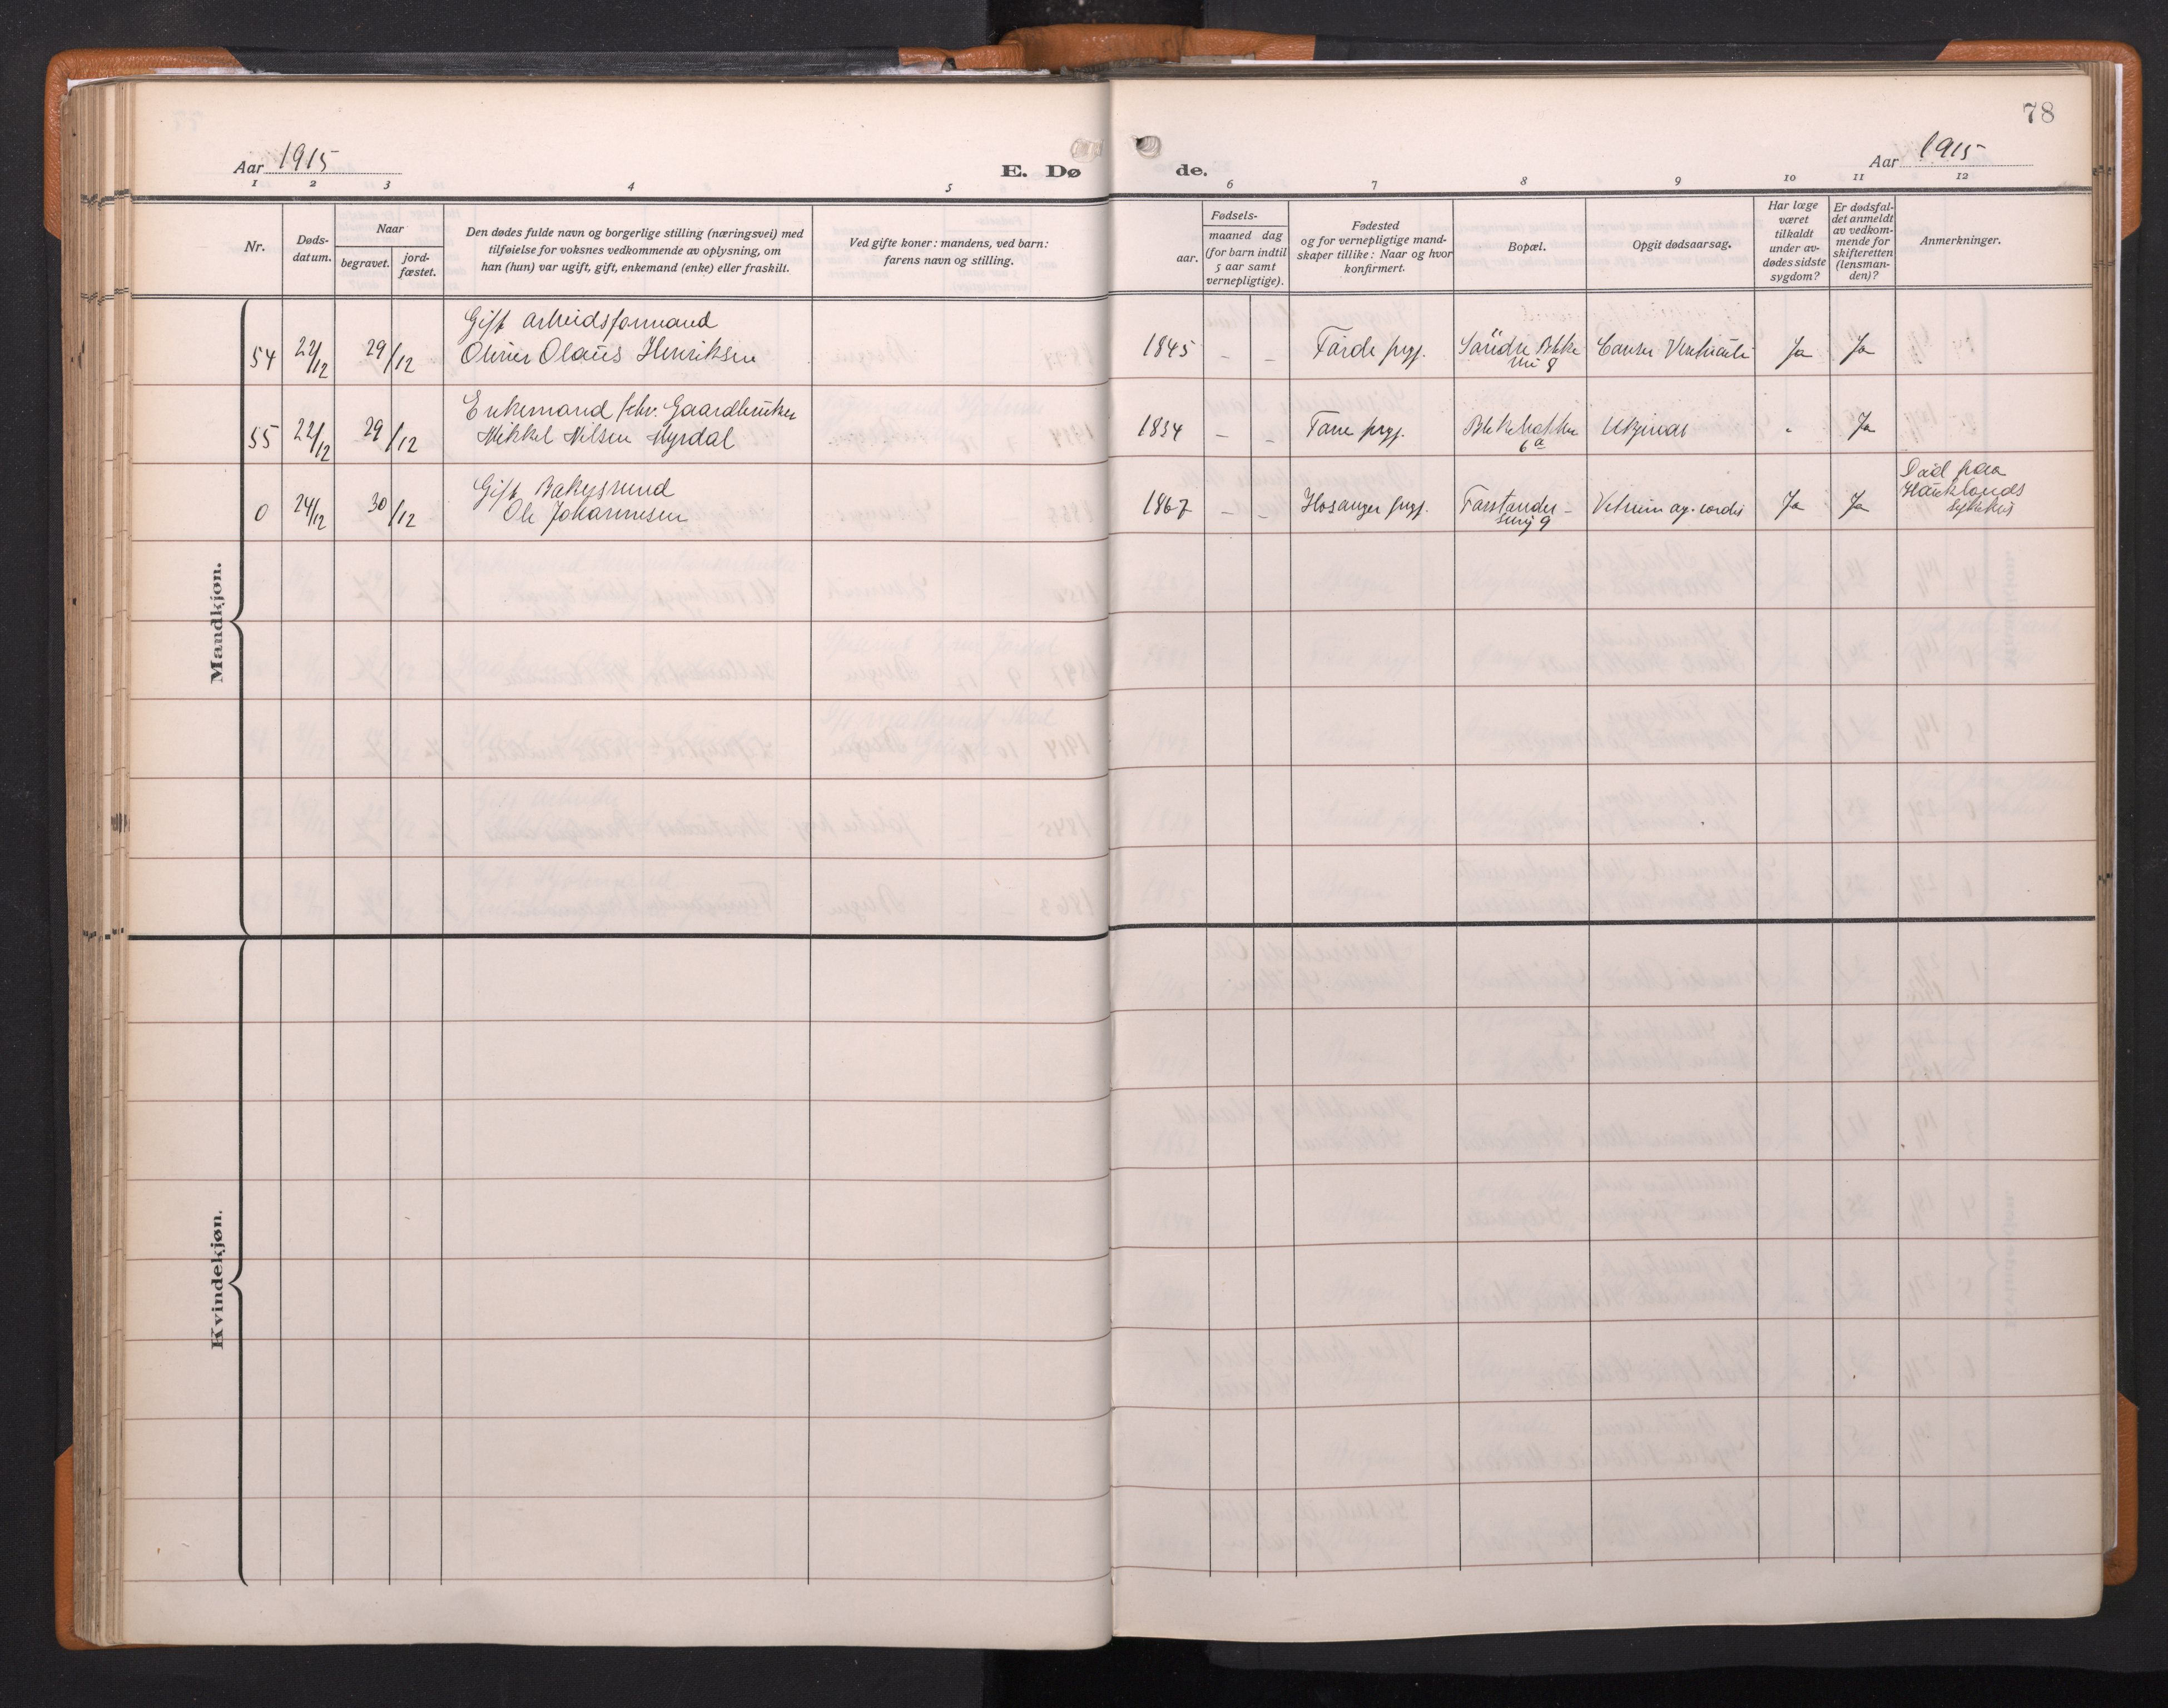 78
Aar 1915
E. Dø de.
Aar 1915
1 2 3 4 5 6 7 8 9 10 11 12
Nr.
Døds-
datum.
Naar
begravet.
jord-
fæstet.
Den dødes fulde navn og borgerlige stilling (næringsvei) med
tilføielse for voksnes vedkommende av oplysning, om
han (hun) var ugift, gift, enkemand (enke) eller fraskilt.
Ved gifte koner: mandens, ved barn:
farens navn og stilling.
Fødsels-
aar.
maaned dag
(for barn indtil
5 aar samt
vernepligtige).
Fødested
og for vernepligtige mand-
skaper tillike: Naar og hvor
konfirmert.
Bopæl.
Opgit dødsaarsag.
Har læge
været
tilkaldt
under av-
dødes sidste
sygdom?
Er dødsfal-
det anmeldt
av vedkom-
mende for
skifteretten
(lensman-
den)?
Anmerkninger.
Mandkjøn.
Gift arbeidsformand
54 22/12 29/12 Oliver Olaus Henriksen 1845 – – Førde prgj. Søndre Blekevei 8 Cancer Ventriculi Ja Ja
Enkemand fhv. Gaardbruker
55 22/12 29/12 Mikkel Nilsen Myrdal 1834 – – Fane prgj. Blekebakken 6a - Ja
Gift
0 24/12 30/12 Ole Johannesen 1867 – – Hosanger prgj. Ja Ja
Død paa
Hauklands
sykehus
Kvindekjøn.